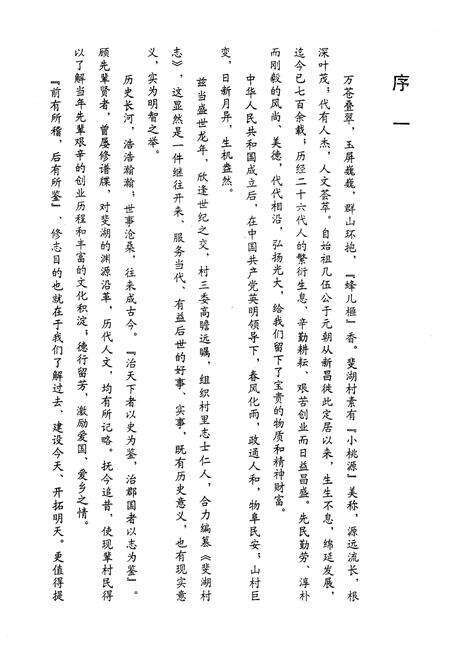 序一
万苍叠翠，玉屏巍巍，群山环抱，『蜂儿榧』香。斐湖村素有『小桃源』美称，源远流长，根
深叶茂；代有人杰，人文荟萃。自始祖几伍公于元朝从新昌徙此定居以来，生生不息，绵延发展，
迄今已七百余载；历经二十六代人的繁衍生息、辛勤耕耘、艰苦创业而日益昌盛。先民勤劳、淳朴
而刚毅的风尚、美德，代代相沿，弘扬光大，给我们留下了宝贵的物质和精神财富。
中华人民共和国成立后，在中国共产党英明领导下，春风化雨，政通人和，物阜民安；山村巨
变，日新月异，生机盎然。
兹当盛世龙年，欣逢世纪之交，村三委高瞻远瞩，组织村里志士仁人，合力编纂《斐湖村
志》，这显然是一件继往开来、服务当代、有益后世的好事、实事，既有历史意义，也有现实意
义，实为明智之举。
历史长河，浩浩瀚瀚；世事沧桑，往来成古今。『治天下者以史为鉴，治郡国者以志为鉴』。
顾先辈贤者，曾屡修谱牒，对斐湖的渊源沿革，历代人文，均有所记略。抚今追昔，使现辈村民得
以了解当年先辈艰辛的创业历程和丰富的文化积淀；德行留芳，激励爱国、爱乡之情。
『前有所稽，后有所鉴』，修志目的也就在于我们了解过去、建设今天、开拓明天。更值得提